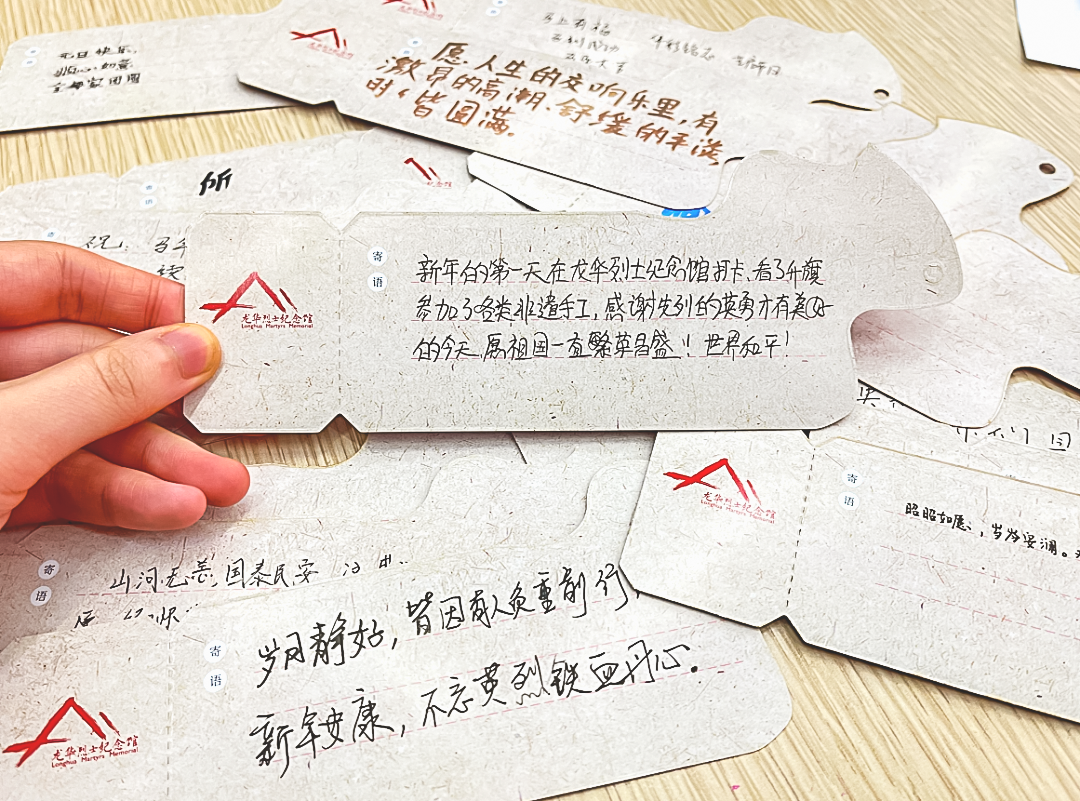 元旦快乐,
顺心如意
全都家团圆
马上有福
愿人生的交响乐里,有
激昂的高潮、舒缓的平淡,
时々皆圆满.
所
祝:马年
寄语
新年的第一天在龙华烈士纪念馆打卡、看了升旗
参加了各类非遗手工,感谢先烈的英勇才有美好
的今天,愿祖国一直繁荣昌盛!世界和平!
龙华烈士纪念馆
Longhua Martyrs Memorial
龙华烈士纪念馆
Longhua Martyrs Memorial
寄语
昭昭如愿,岁岁安澜。
寄语
山河无恙,国泰民安
寄语
岁月静好,皆因有人负重前行,
新年安康,不忘英烈铁血丹心.
龙华烈士纪念馆
Longhua Martyrs Memorial